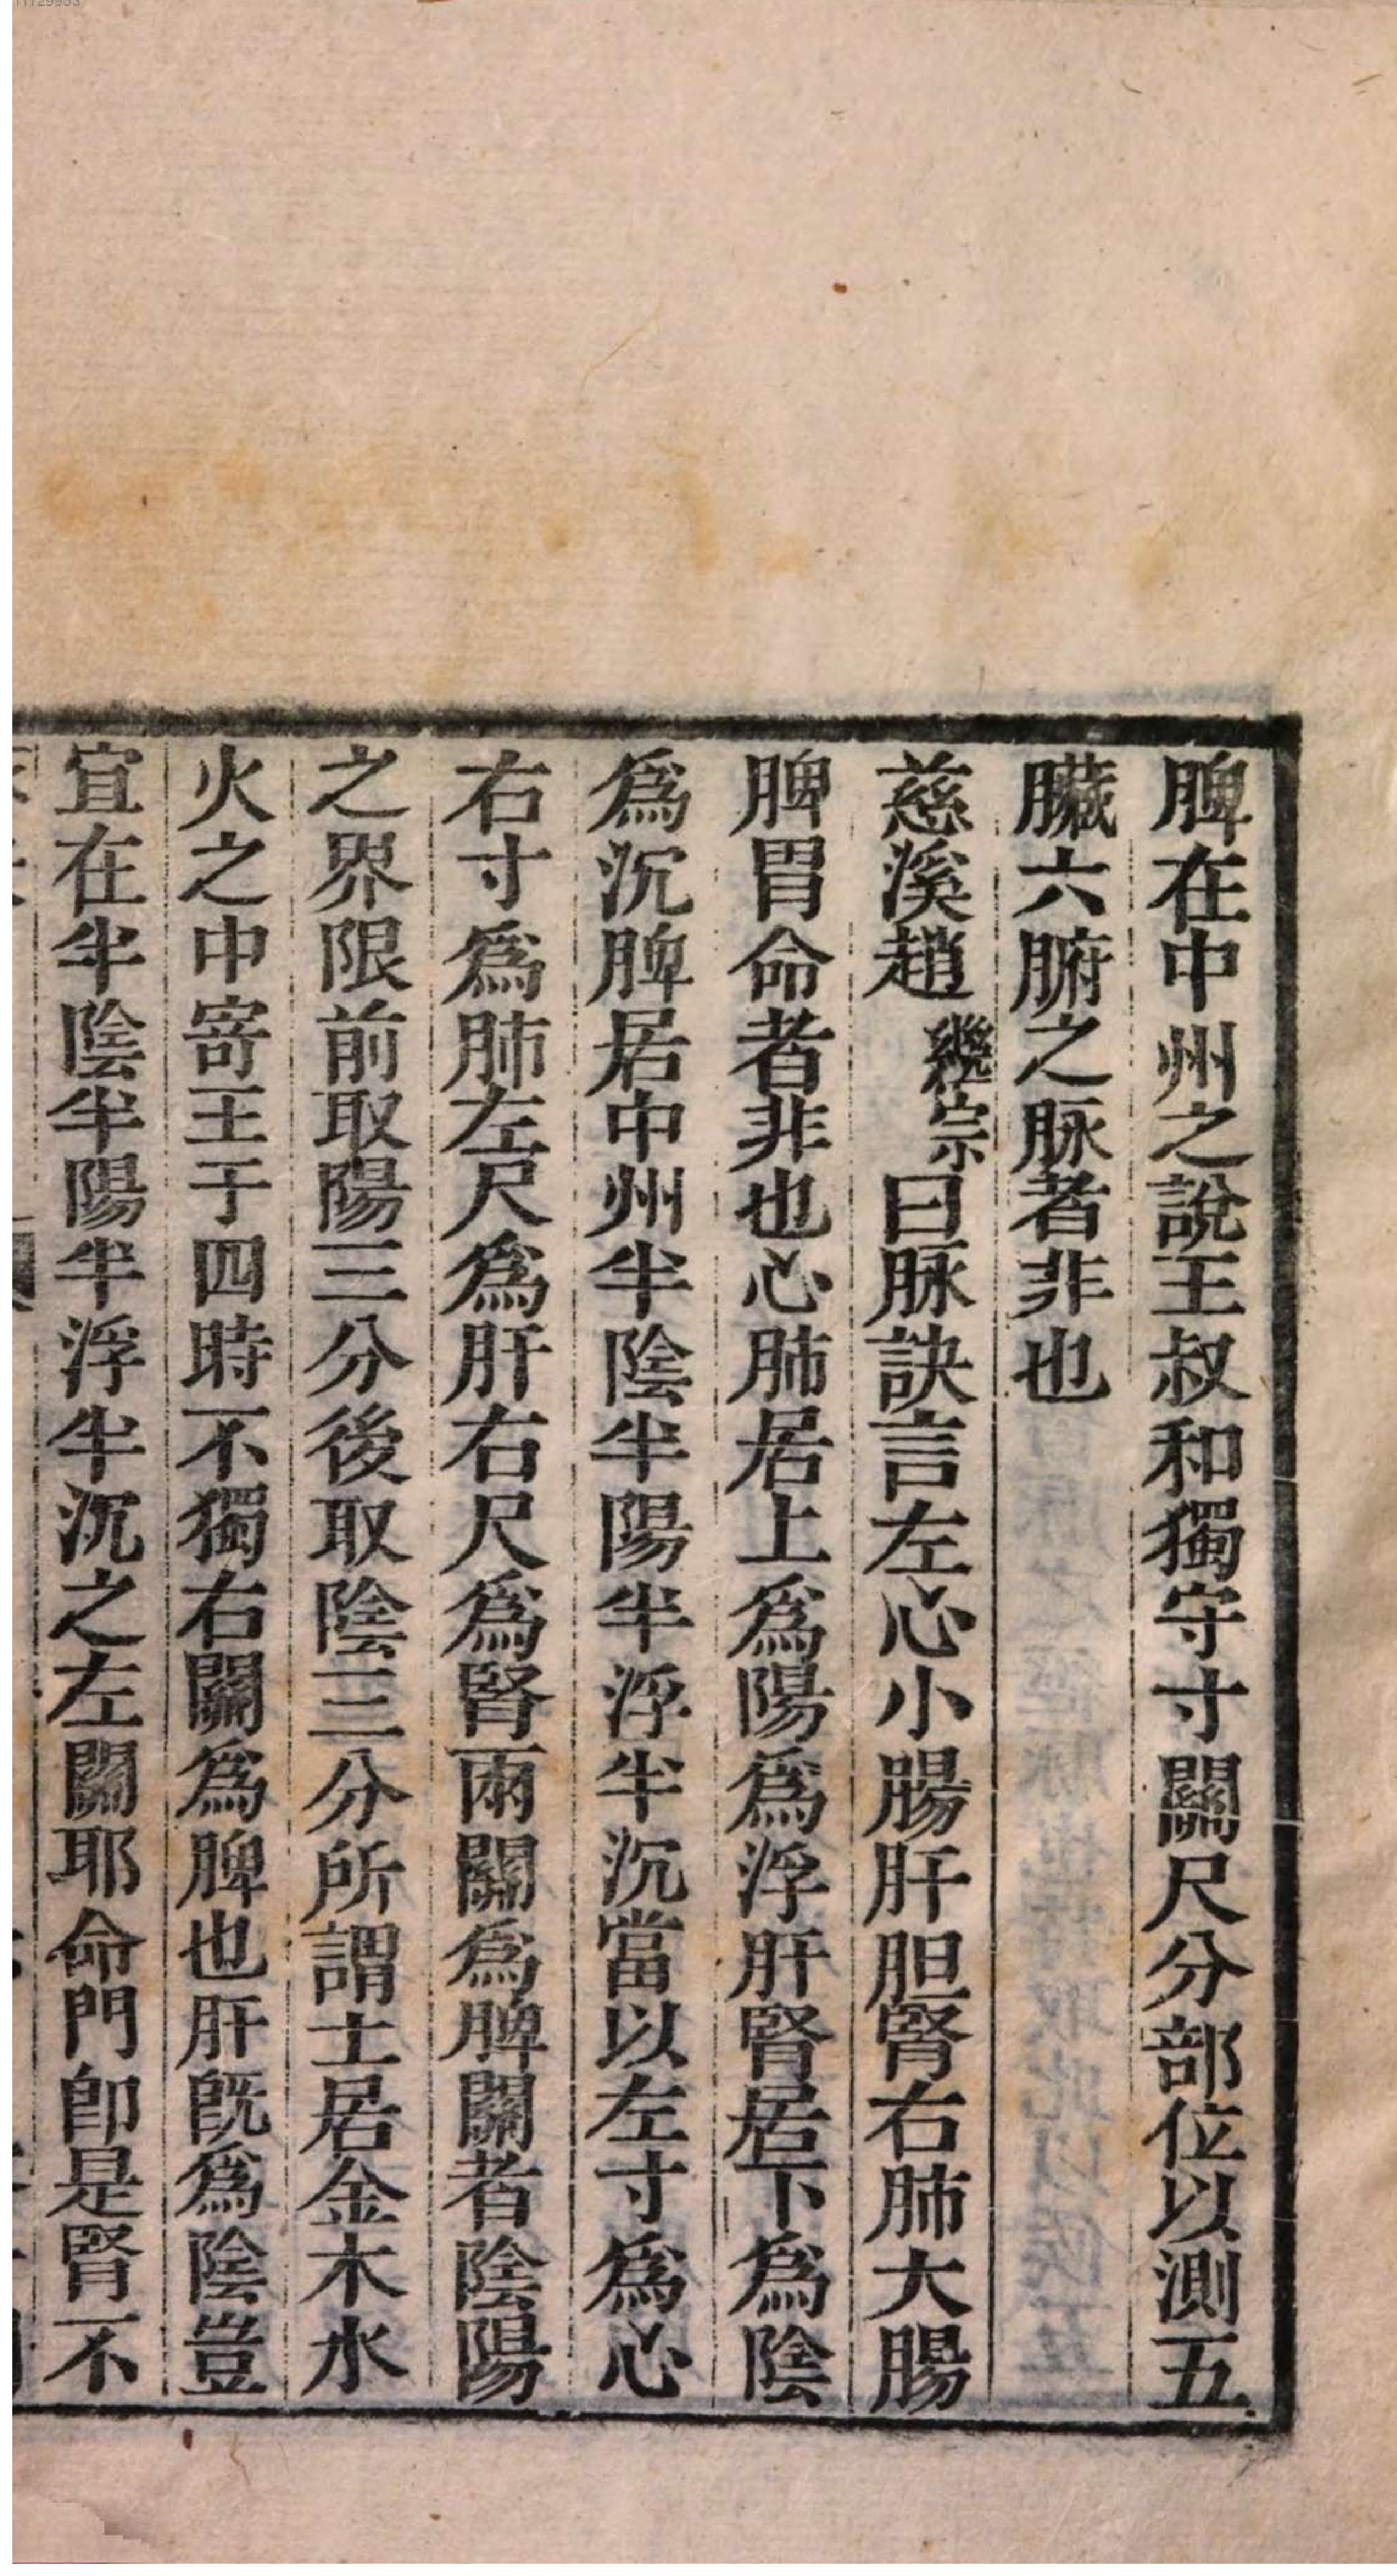 脾在中州之說王叔和獨守寸關尺分部位以測五
臟六腑之脉者非也
慈溪趙繼宗曰脉訣言左心小腸肝胆腎右肺大腸
脾胃命者非也心肺居上爲陽爲浮肝腎居下爲陰
爲沉脾居中州半陰半陽半浮半沉當以左寸爲心
右寸爲肺左尺爲肝右尺爲腎兩關爲脾關者陰陽
之界限前取陽三分後取陰三分所謂土居金木水
火之中寄王于四時不獨右關爲脾也肝旣爲陰豈
宜在半陰半陽半浮半沉之左關耶命門卽是腎不